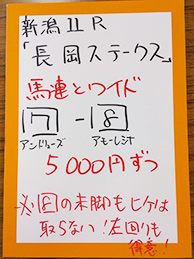 新潟11R
「長岡ステークス」
馬連とワイド
17-18
アンドリューズ アモーレミオ
5000円ずつ
※18の末脚もヒケは
取らない!左回りも
得意!